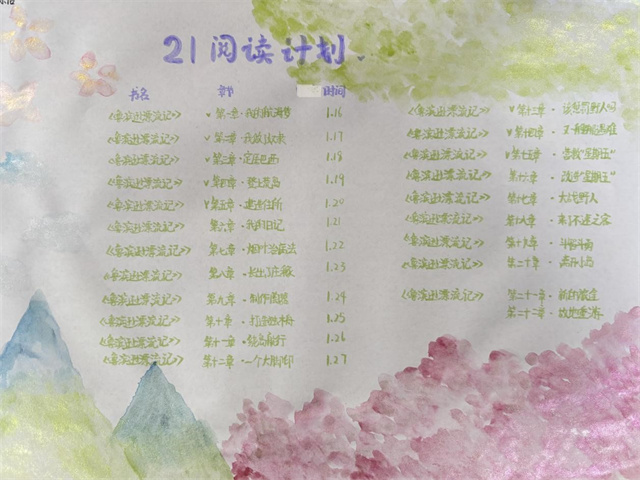 21阅读计划
书名 章节 时间
《鲁滨逊漂流记》 √第一章·我的航海梦 1.16
《鲁滨逊漂流记》 √第二章· 1.17
《鲁滨逊漂流记》 √第三章·定居巴西 1.18
《鲁滨逊漂流记》 √第四章·登上荒岛 1.19
《鲁滨逊漂流记》 √第五章·建造住所 1.20
《鲁滨逊漂流记》 第六章·我的日记 1.21
《鲁滨逊漂流记》 第七章·烟叶治疟法 1.22
《鲁滨逊漂流记》 第八章· 1.23
《鲁滨逊漂流记》 第九章·制作 1.24
《鲁滨逊漂流记》 第十章·打造独木舟 1.25
《鲁滨逊漂流记》 第十一章·绕岛航行 1.26
《鲁滨逊漂流记》 第十二章·一个大脚印 1.27
《鲁滨逊漂流记》 √第十三章·
《鲁滨逊漂流记》 √第十四章·
《鲁滨逊漂流记》 √第十五章·"星期五"
《鲁滨逊漂流记》 第十六章·"星期五"
《鲁滨逊漂流记》 第十七章·大战野人
《鲁滨逊漂流记》 第十八章·
《鲁滨逊漂流记》 第十九章·
《鲁滨逊漂流记》 第二十章·离开小岛
《鲁滨逊漂流记》 第二十一章·
第二十二章·故地重游